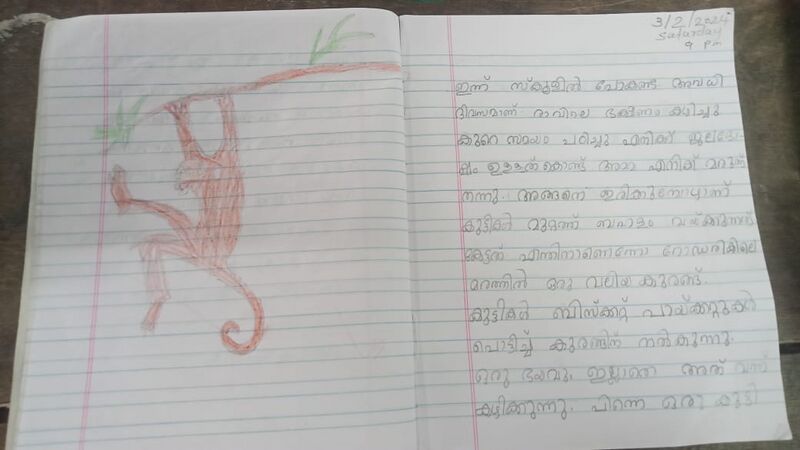 3/2/2024
Saturday
9 pm
ഇന്ന് സ്കൂളിൽ പോകണ്ട അവധി
ദിവസമാണ് രാവിലെ ഭക്ഷണം കഴിച്ചു
കുറെ സമയം പഠിച്ചു എനിക്ക് ജലദോ-
ഷം ഉള്ളത്കൊണ്ട് അമ്മ എനിക്ക് മറുന്ന്
തന്നു. അങ്ങനെ ഇരിക്കുമ്പോഴാണ്
കുട്ടികൾ വന്ന് ബഹളം വയ്ക്കുന്നത്
കേട്ടത് എന്തിനാണെന്നോ റോഡരികിലെ
മരത്തിൽ ഒരു വലിയ കുരങ്ങ്.
കുട്ടികൾ ബിസ്ക്കറ്റ് പായ്ക്കറ്റുകൾ
പൊട്ടിച്ച് കുരങ്ങിന് നൽകുന്നു.
ഒരു ഭയവും ഇല്ലാതെ അത് വന്ന്
കഴിക്കുന്നു. പിന്നെ ഒരു കുട്ടി